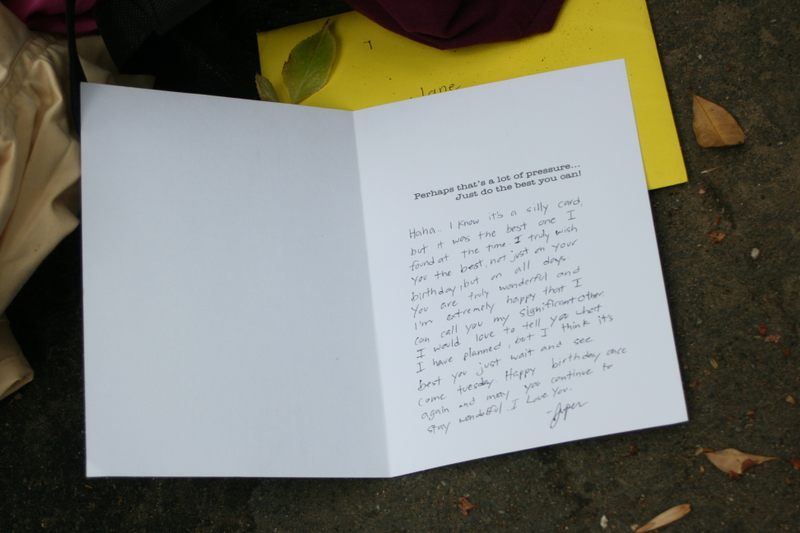 Jane
Perhaps that's a lot of pressure...
Just do the best you can!
Haha.. I know it's a silly card,
but it was the best one I
found at the time. I truly wish
you the best, not just on your
birthday, but on all days.
You are truly wonderful and
I'm extremely happy that I
can call you my significant other.
I would love to tell you what
I have planned, but I think it's
best you just wait and see
come tuesday. Happy birthday once
again and may you continue to
stay wonderful. I Love You.